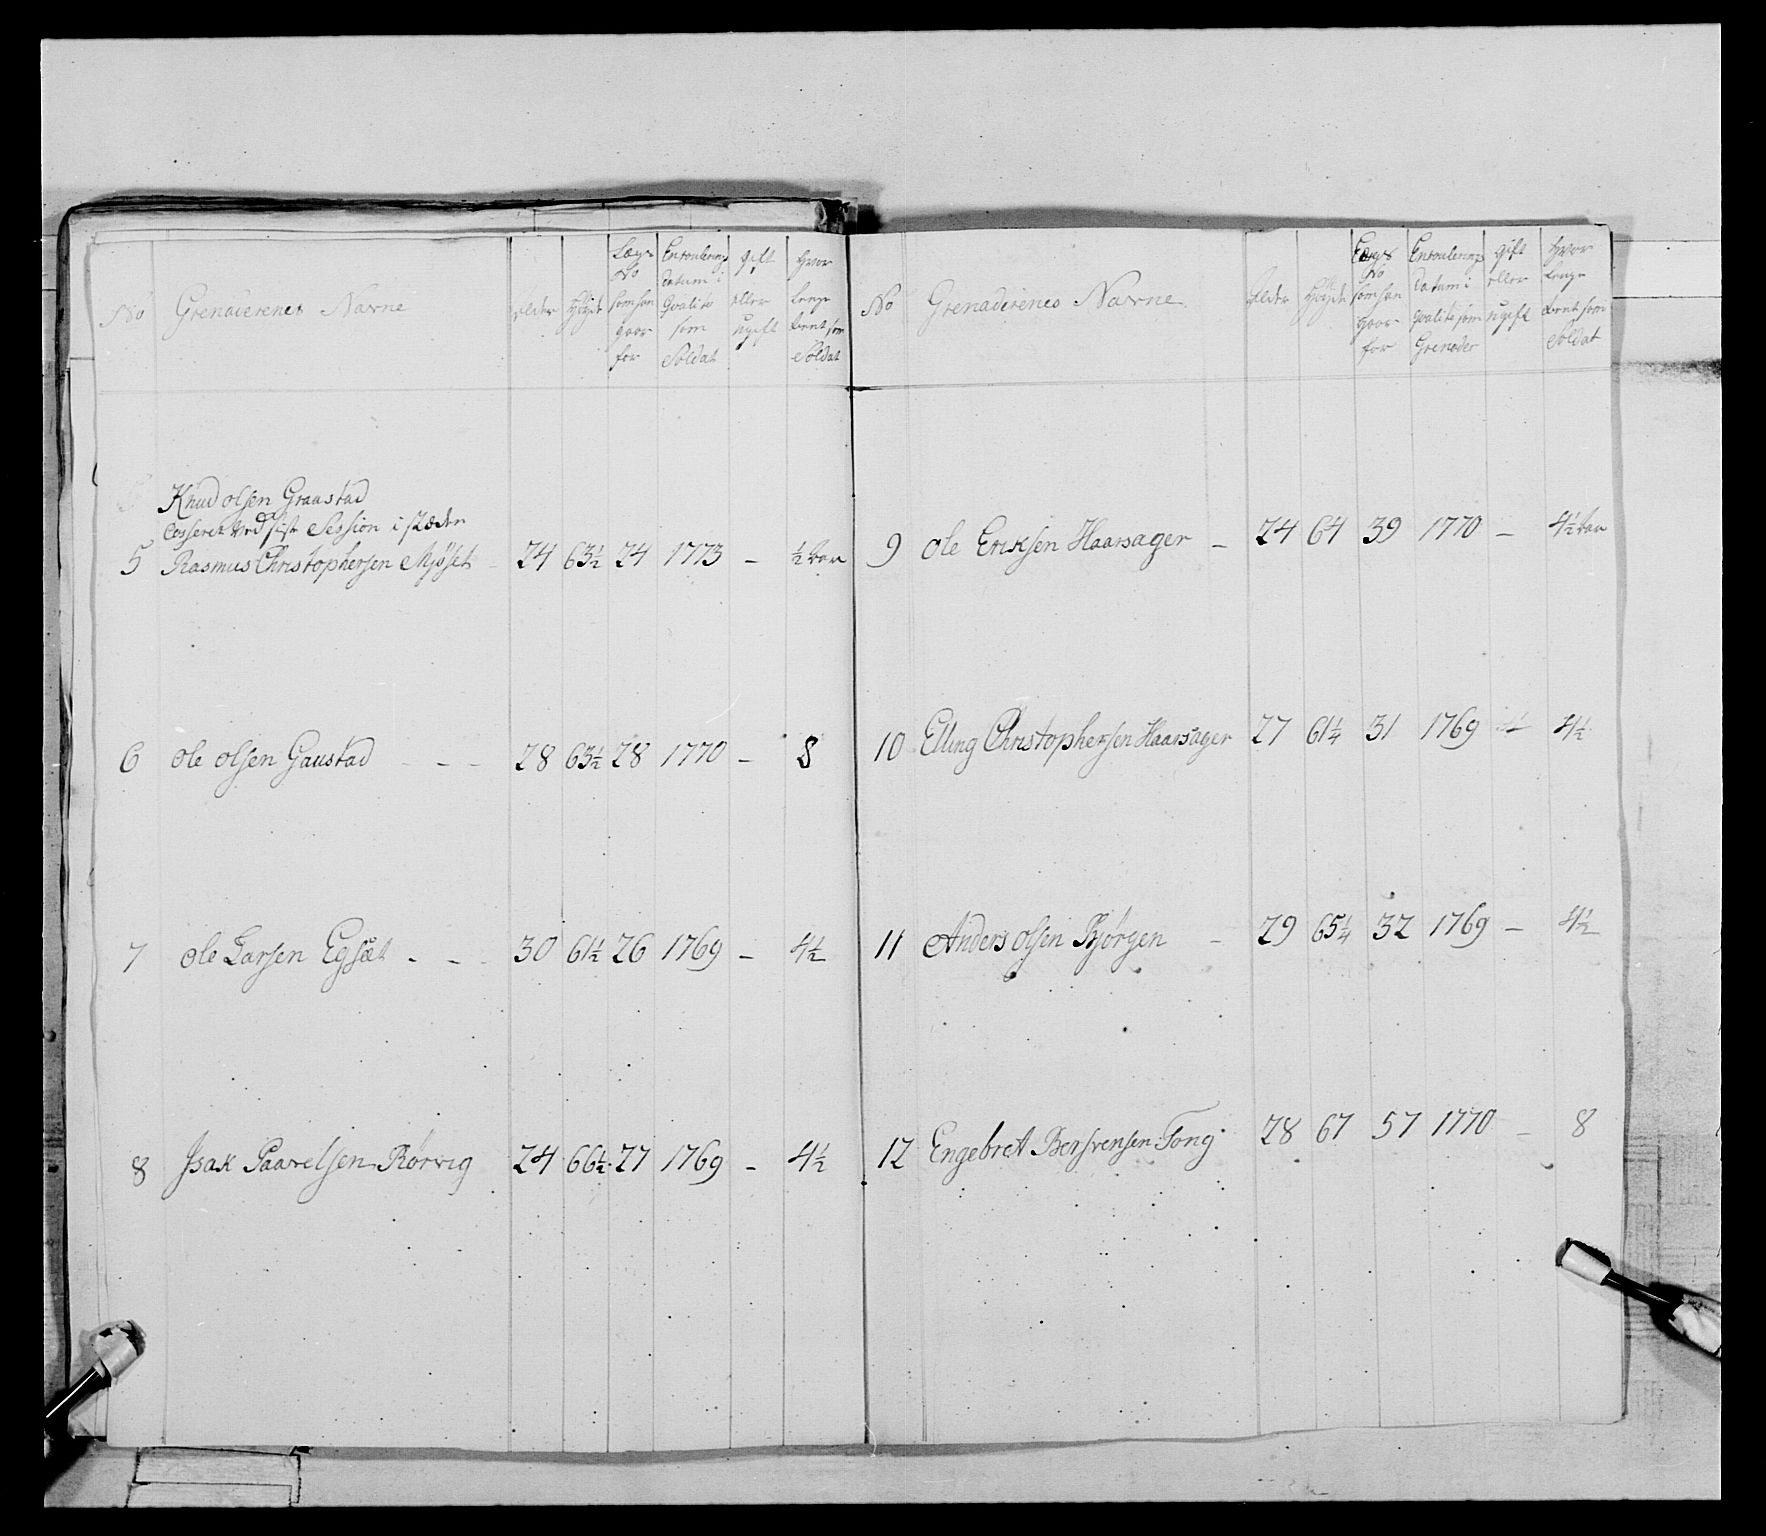 No Grenaderenes Navne Alder Høyde Lægs No som han gaar for Enroulerings Datum i Qvalite som Soldat gift eller ugift hvor lenge tient som Soldat
Knud olsen Graustad
Casseret ved siste Session i stæden
5 Rasmus Christophersen Mjøset - 24 63½ 24 1773 - ½ aar
6 Ole Olsen Gaustad - - - 28 63½ 28 1770 - 8
7 Ole Larsen Egsæt - - - 30 61½ 26 1769 - 4½
8 Isak Paavelsen Rørvig 24 66½ 27 1769 - 4½
No Grenaderenes Navne Alder Høyde Lægs No som han gaar for Enroulerings Datum i Qvalite som Grenader gift eller ugift hvor lenge tient som Soldat
9 Ole Eriksen Haarsager - 24 64 39 1770 - 4½ aar
10 Elling Christophersen Haarsager 27 61¼ 31 1769 - 4½
11 Anders Olsen Bjørgen - 29 65¼ 32 1769 - 4½
12 Engebret Bersvensen Tong 28 67 57 1770 - 8